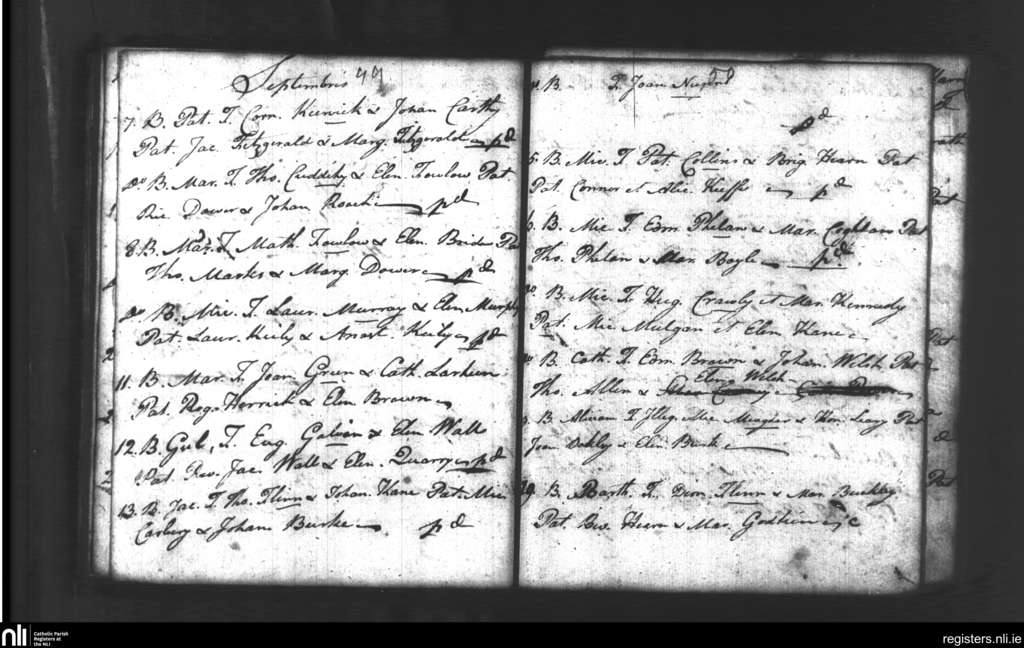 Septembris 99
7. B. Pat. F. Corn. Kennick & Johan Carthy
Pat. Jac. Fitzgerald & Marg. Fitzgerald pd
do B. Mar. F. Tho. Cuddihy & Elen. Fowlow Pat.
Ric. Dower & Johan Roach pd
8. B. Mar. F. Math. Fowlow & Elen. Bride Pat
Tho. Marks & Marg. Dower pd
do B. Mic. F. Laur. Murray & Elen Murphy
Pat. Laur. Kiely & Anast. Kiely pd
11. B. Mar. F. Joan. Green & Cath. Larkin
Pat. Rog. Herrick & Elen Brown
12. B. Gul. F. Eug. Galvin & Elen Wall
Pat. Rev. Jac. Wall & Elen. Quarry pd
13. B. Jac. F. Tho. Flinn & Johan. Kane Pat. Mic
Carbery & Johan Burke pd
B. F. Joan Nugent 58
pd
5. B. Mic. F. Pat. Collins & Brig. Hearn Pat
Pat. Connor et Alic. Kieffe pd
6. B. Mic F. Edm. Phelan & Mar. Coghlan Pat
Tho. Phelan & Mar. Boyle pd
do B. Mic. F. Hug. Crawly et Mar. Kennedy
Pat. Mic Mulgan et Elen Kane
B. Cath. F. Edm. Brown & Johan. Welch Pat
Elen Welch
Tho. Allen &
B. Miriam F. Illeg. Alic Meagher & Hon. Leary Pat
Joan Oakly & Elen Burke
29. B. Barth. F. Dion. Flinn & Mar. Buckley
Pat. Hearn & Mar. Godkin
nli
Catholic Parish
Registers at
the NLI
registers.nli.ie